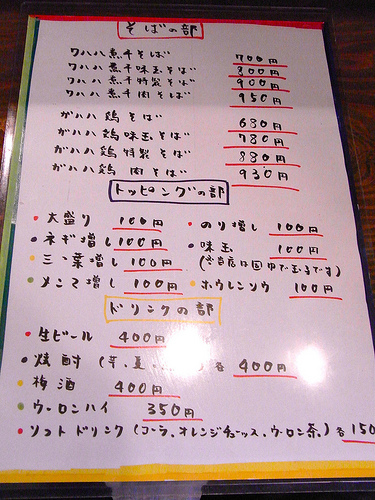 そばの部
ワハハ煮干そば 700円
ワハハ煮干味玉そば 800円
ワハハ煮干特製そば 900円
ワハハ煮干肉そば 950円
ガハハ鶏そば 680円
ガハハ鶏味玉そば 780円
ガハハ鶏特製そば 880円
ガハハ鶏肉そば 930円
トッピングの部
・大盛り 100円 ・のり増し 100円
・ネギ増し 100円 ・味玉 100円
(※当店は国
玉子です)
・三つ葉増し 100円
・メンマ増し 100円 ・ホウレンソウ 100円
ドリンクの部
・生ビール 400円
・焼酎 (芋、麦、 ) 各 400円
・梅酒 400円
・ウーロンハイ 350円
・ソフトドリンク (コーラ、オレンジジュース、ウーロン茶) 各 150